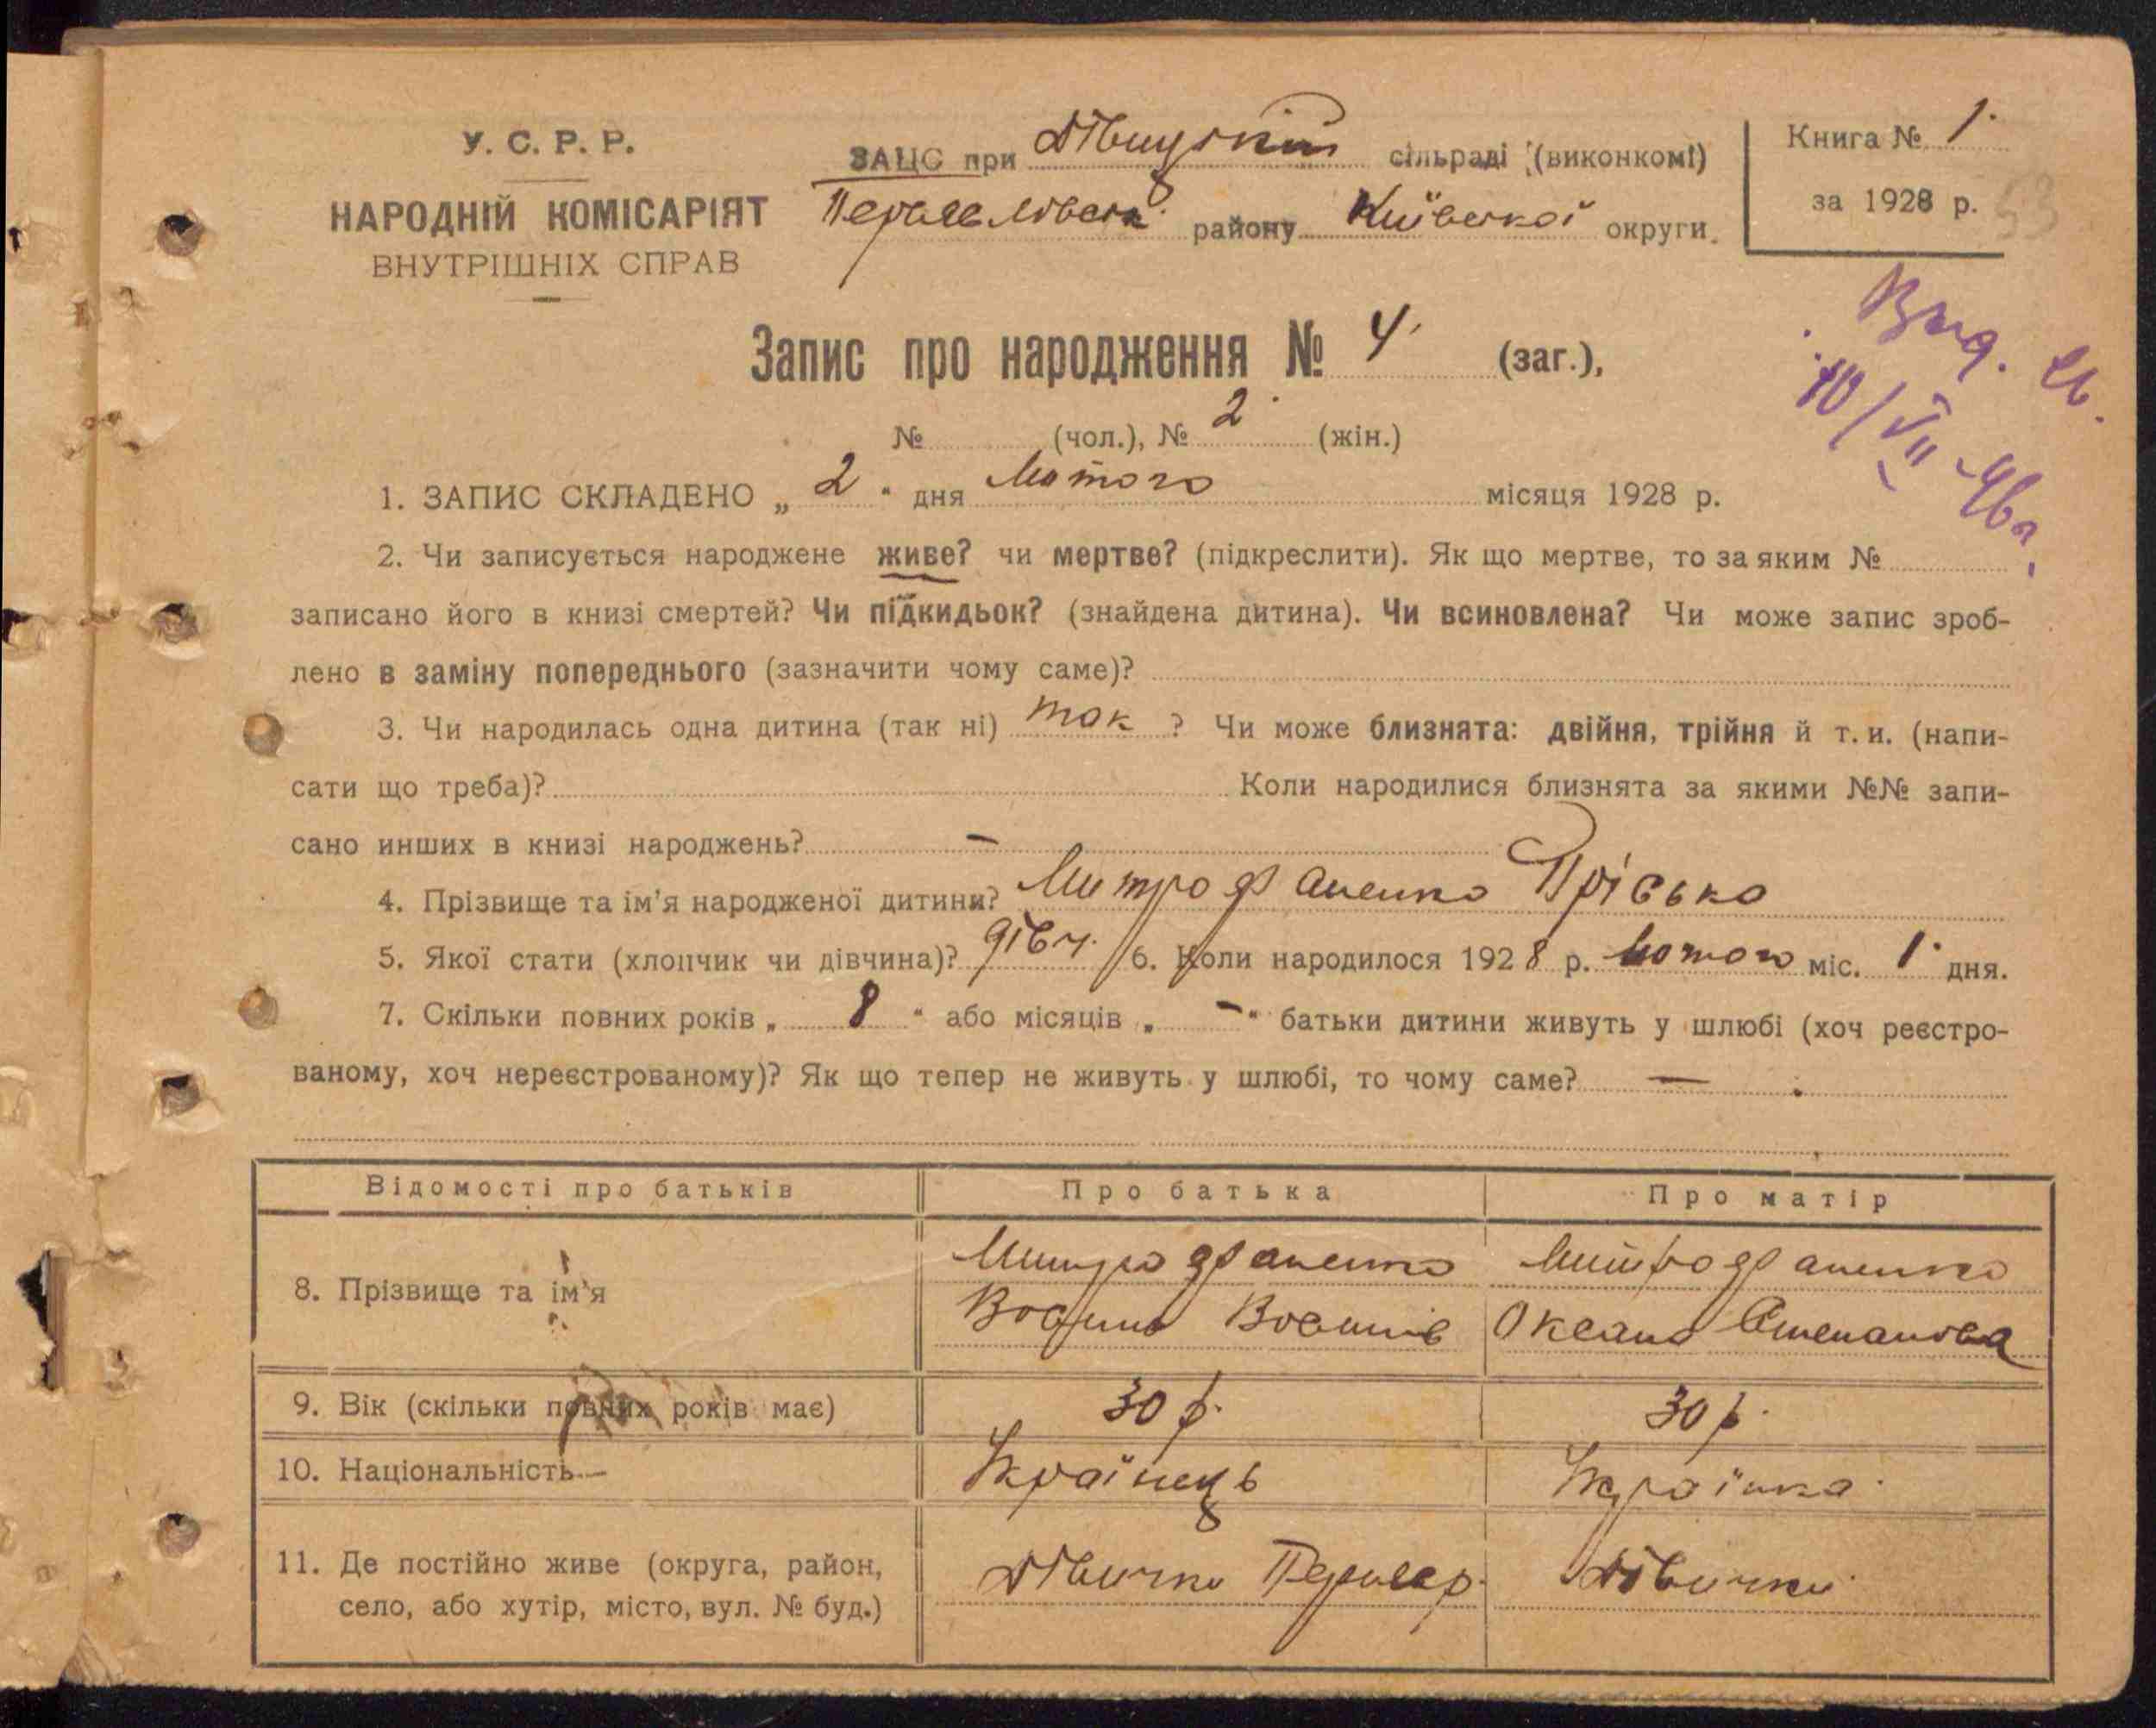 У. С. Р. Р.
НАРОДНІЙ КОМІСАРІЯТ
ВНУТРІШНІХ СПРАВ
ЗАЦС при Дівицькій сільраді (виконкомі)
району Київської округи.
Книга № 1.
за 1928 р. 53
Вид. св.
10/VII 46р.
Запис про народження № 4 (заг.),
№ (чол.), № 2 (жін.)
1. ЗАПИС СКЛАДЕНО „ 2 “ дня Лютого місяця 1928 р.
2. Чи записується народжене живе? чи мертве? (підкреслити). Як що мертве, то за яким №
записано його в книзі смертей? Чи підкидьок? (знайдена дитина). Чи всиновлена? Чи може запис зроб-
лено в заміну попереднього (зазначити чому саме)?
3. Чи народилась одна дитина (так ні) так ? Чи може близнята: двійня, трійня й т. и. (напи-
сати що треба)? Коли народилися близнята за якими №№ запи-
сано инших в книзі народжень? —
4. Прізвище та ім'я народженої дитини? Митрофаненко Прісько
5. Якої стати (хлопчик чи дівчина)? дівч. 6. Коли народилося 1928 р. Лютого міс. 1 дня.
7. Скільки повних років „ 8 “ або місяців „ — “ батьки дитини живуть у шлюбі (хоч реєстро-
ваному, хоч нереєстрованому)? Як що тепер не живуть у шлюбі, то чому саме? —
Відомості про батьків Про батька Про матір
8. Прізвище та ім'я Митрофаненко Митрофаненко
Оксана Степанова
9. Вік (скільки повних років має) 30 р. 30 р.
10. Національність — Українець Українка
11. Де постійно живе (округа, район, Дівички Дівички
село, або хутір, місто, вул. № буд.)